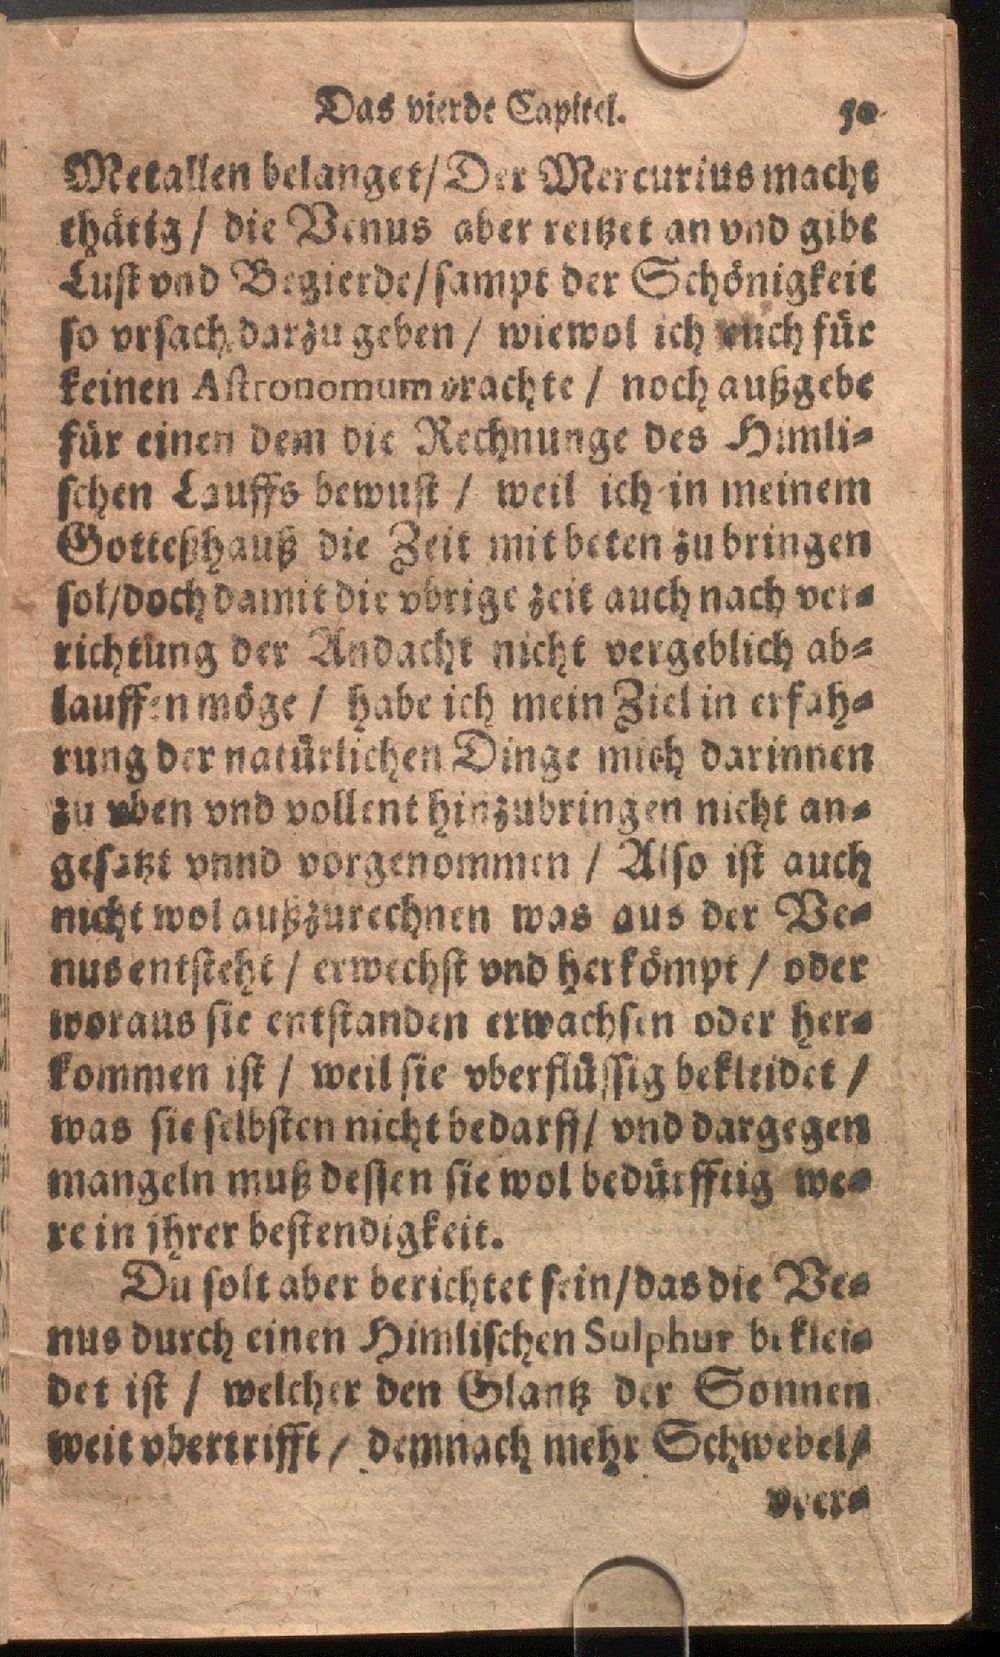 Das vierde Capitel. 50
Metallen belanget/ Der Mercurius macht
thätig / die Venus aber reitzet an vnd gibt
Lust vnd Begierde/ sampt der Schönigkeit
so vrsach darzu geben / wiewol ich euch für
keinen Astronomum erachte / noch außgebe
für einen dem die Rechnunge des Himli-
schen Lauffs bewust / weil ich in meinem
Gotteßhauß die Zeit mit beten zu bringen
sol/ doch damit die vbrige zeit auch nach ver-
richtung der Andacht nicht vergeblich ab-
lauffen möge / habe ich mein Ziel in erfah-
rung der natürlichen Dinge mich darinnen
zu vben vnd vollent hinzubringen nicht an-
gesetzt vnnd vorgenommen / Also ist auch
nicht wol außzurechnen was aus der Ve-
nus entsteht / erwechst vnd herkömpt / oder
woraus sie entstanden erwachsen oder her-
kommen ist / weil sie vberflüssig bekleidet /
was sie selbsten nicht bedarff/ vnd dargegen
mangeln muß dessen sie wol bedürfftig we-
re in jhrer bestendigkeit.
Du solt aber berichtet sein/ das die Ve-
nus durch einen Himlischen Sulphur beklei-
det ist / welcher den Glantz der Sonnen
weit vbertrifft / demnach mehr Schwebel/